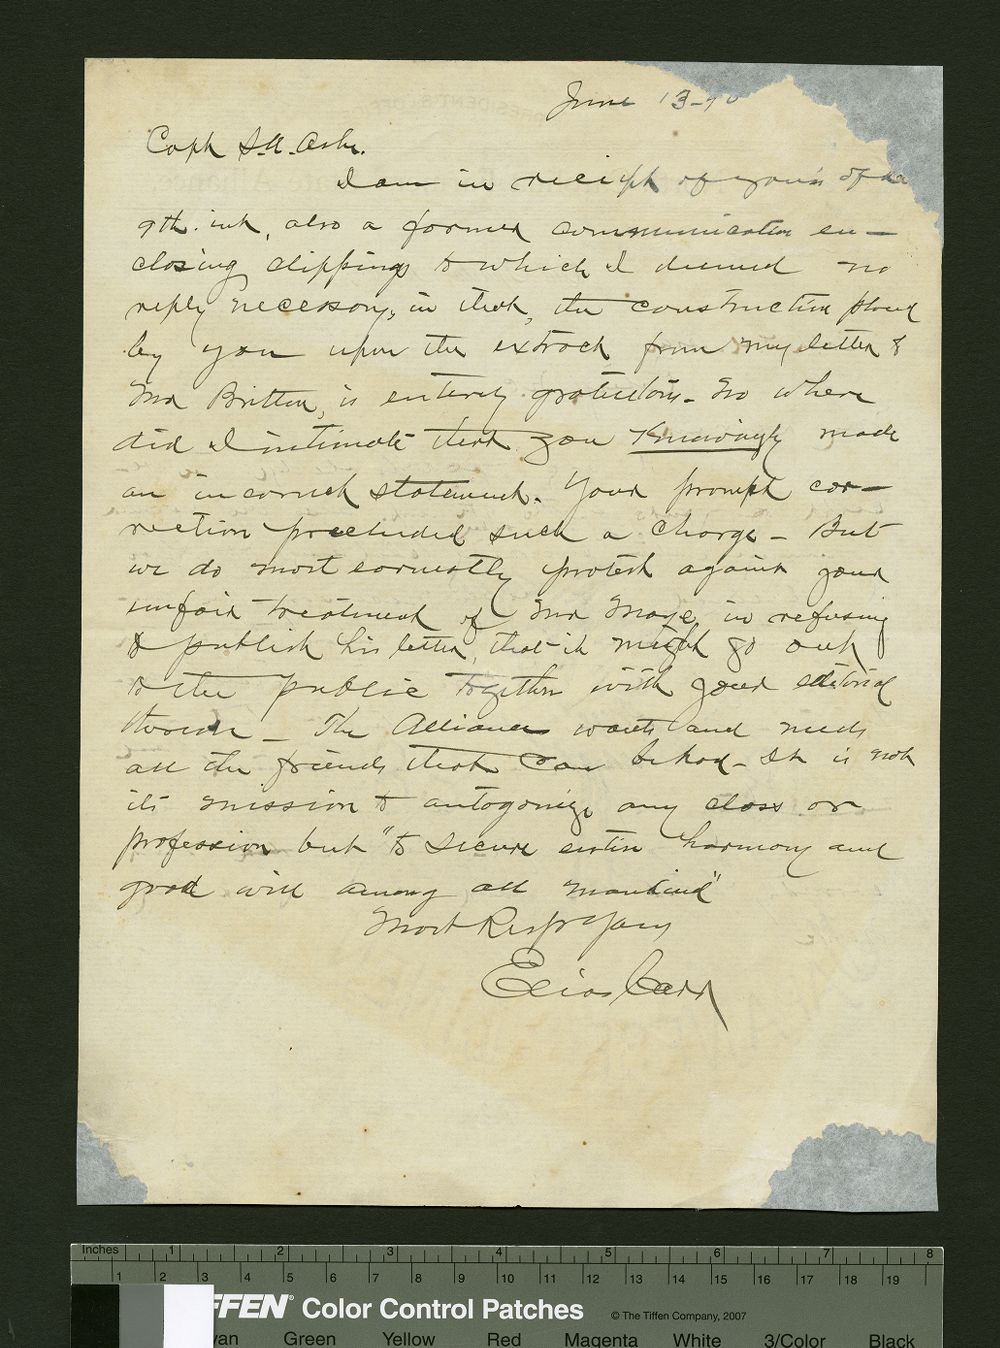 June 13-90
Capt S.A. Ashe.
I am in receipt of yours of
9th. inst, also a former communication en-
closing clippings to which I deemed no
reply necessary, in that, the construction placed
by you upon the extract from my letter to
Mr Britton, is entirely gratuitous. No where
did I intimate that you Knowingly made
an incorrect statement. Your prompt cor-
rection precluded such a charge - But
we do most earnestly protest against your
unfair treatment of Mr in refusing
to publish his letter, that it might go out
to the public together with your editorial
The Alliance wants and needs
all the friends that can be had - It is not
its mission to antagonize any class or
profession but "to secure entire harmony and
good will among all mankind"
Most Respt Yours
Elias Carr
Inches 1 2 3 4 5 6 7 8
1 2 3 4 5 6 7 8 9 10 11 12 13 14 15 16 17 18 19
FFEN® Color Control Patches © The Tiffen Company, 2007
yan Green Yellow Red Magenta White 3/Color Black